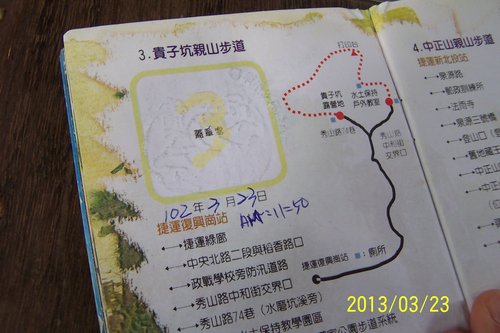 3.貴子坑親山步道
3
蓋章處
102年3月23日
AM:11:50
捷運復興崗站
捷運綠廊
中央北路二段與稻香路口
政戰學校旁防汛道路
秀山路中和街交界口
秀山路74巷(水磨坑溪旁)
水土保持教學園區
打印台
貴子坑
露營地
水土保持
戶外教室
秀山路74巷
秀山路
中和街
交界口
捷運復興崗站
:廁所
4.中正山親山步道
捷運新北投站
泉源路
郵政訓練所
法雨寺
泉源三號橋
登山口
舊地藏王
中正山
中正山
2013/03/23